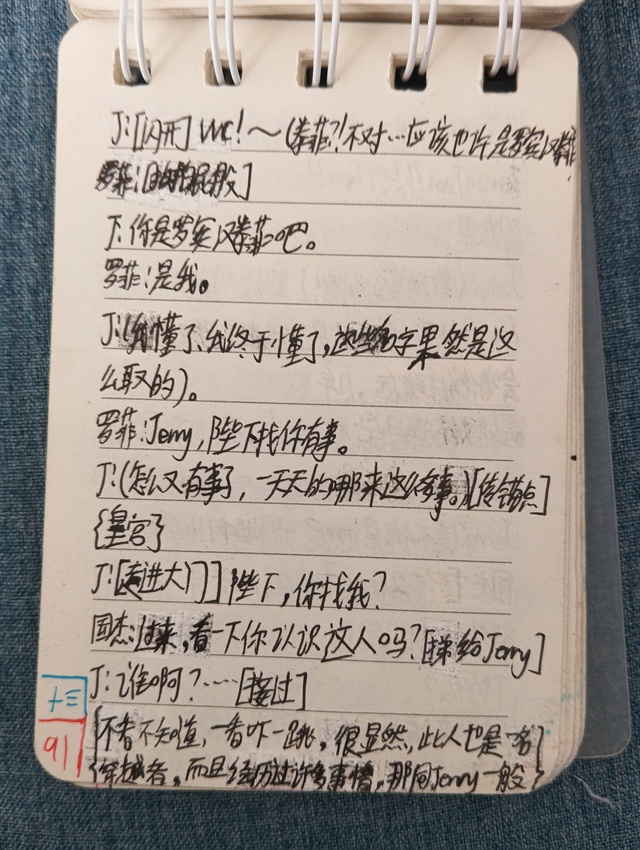 J:[闪开] WC!~(拳菲?!不对…应该也许是罗宾汉拳菲
罗菲:[眼般]
J:你是罗宾汉拳菲吧。
罗菲:是我。
J:(我懂了、我终于懂了,这些名字果然是这
么取的)。
罗菲:Jerry,陛下找你有事。
J:(怎么又有事了,一天天的哪来这么多事。)[传锚点]
{皇宫}
J:[走进大门]陛下,你找我?
国杰:过来,看一下你认识这人吗?[递给Jerry]
J:谁啊?……[接过]
{不看不知道,一看吓一跳,很显然,此人也是一名
穿越者,而且经历过许多事情,那同Jerry一般}
十三
91